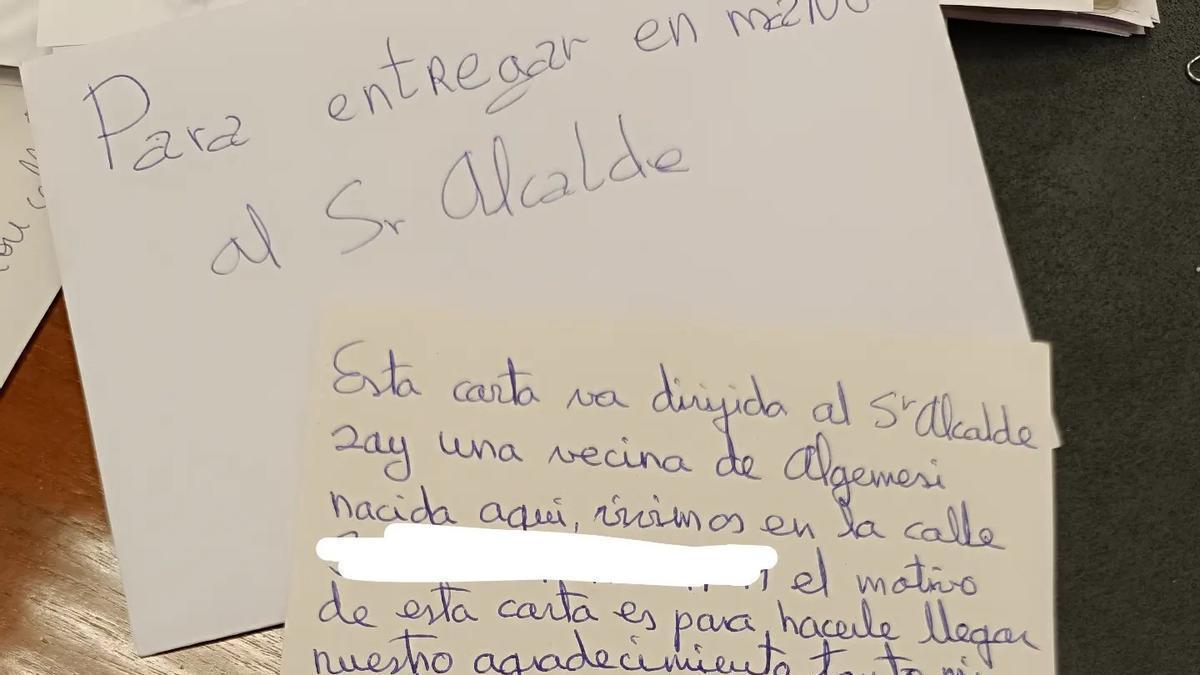 Para entregar en mano
al Sr Alcalde
Esta carta va dirijida al Sr Alcalde
soy una vecina de Algemesi
nacida aqui, vivimos en la calle
el motivo
de esta carta es para hacerle llegar
nuestro agradecimiento tanto mi